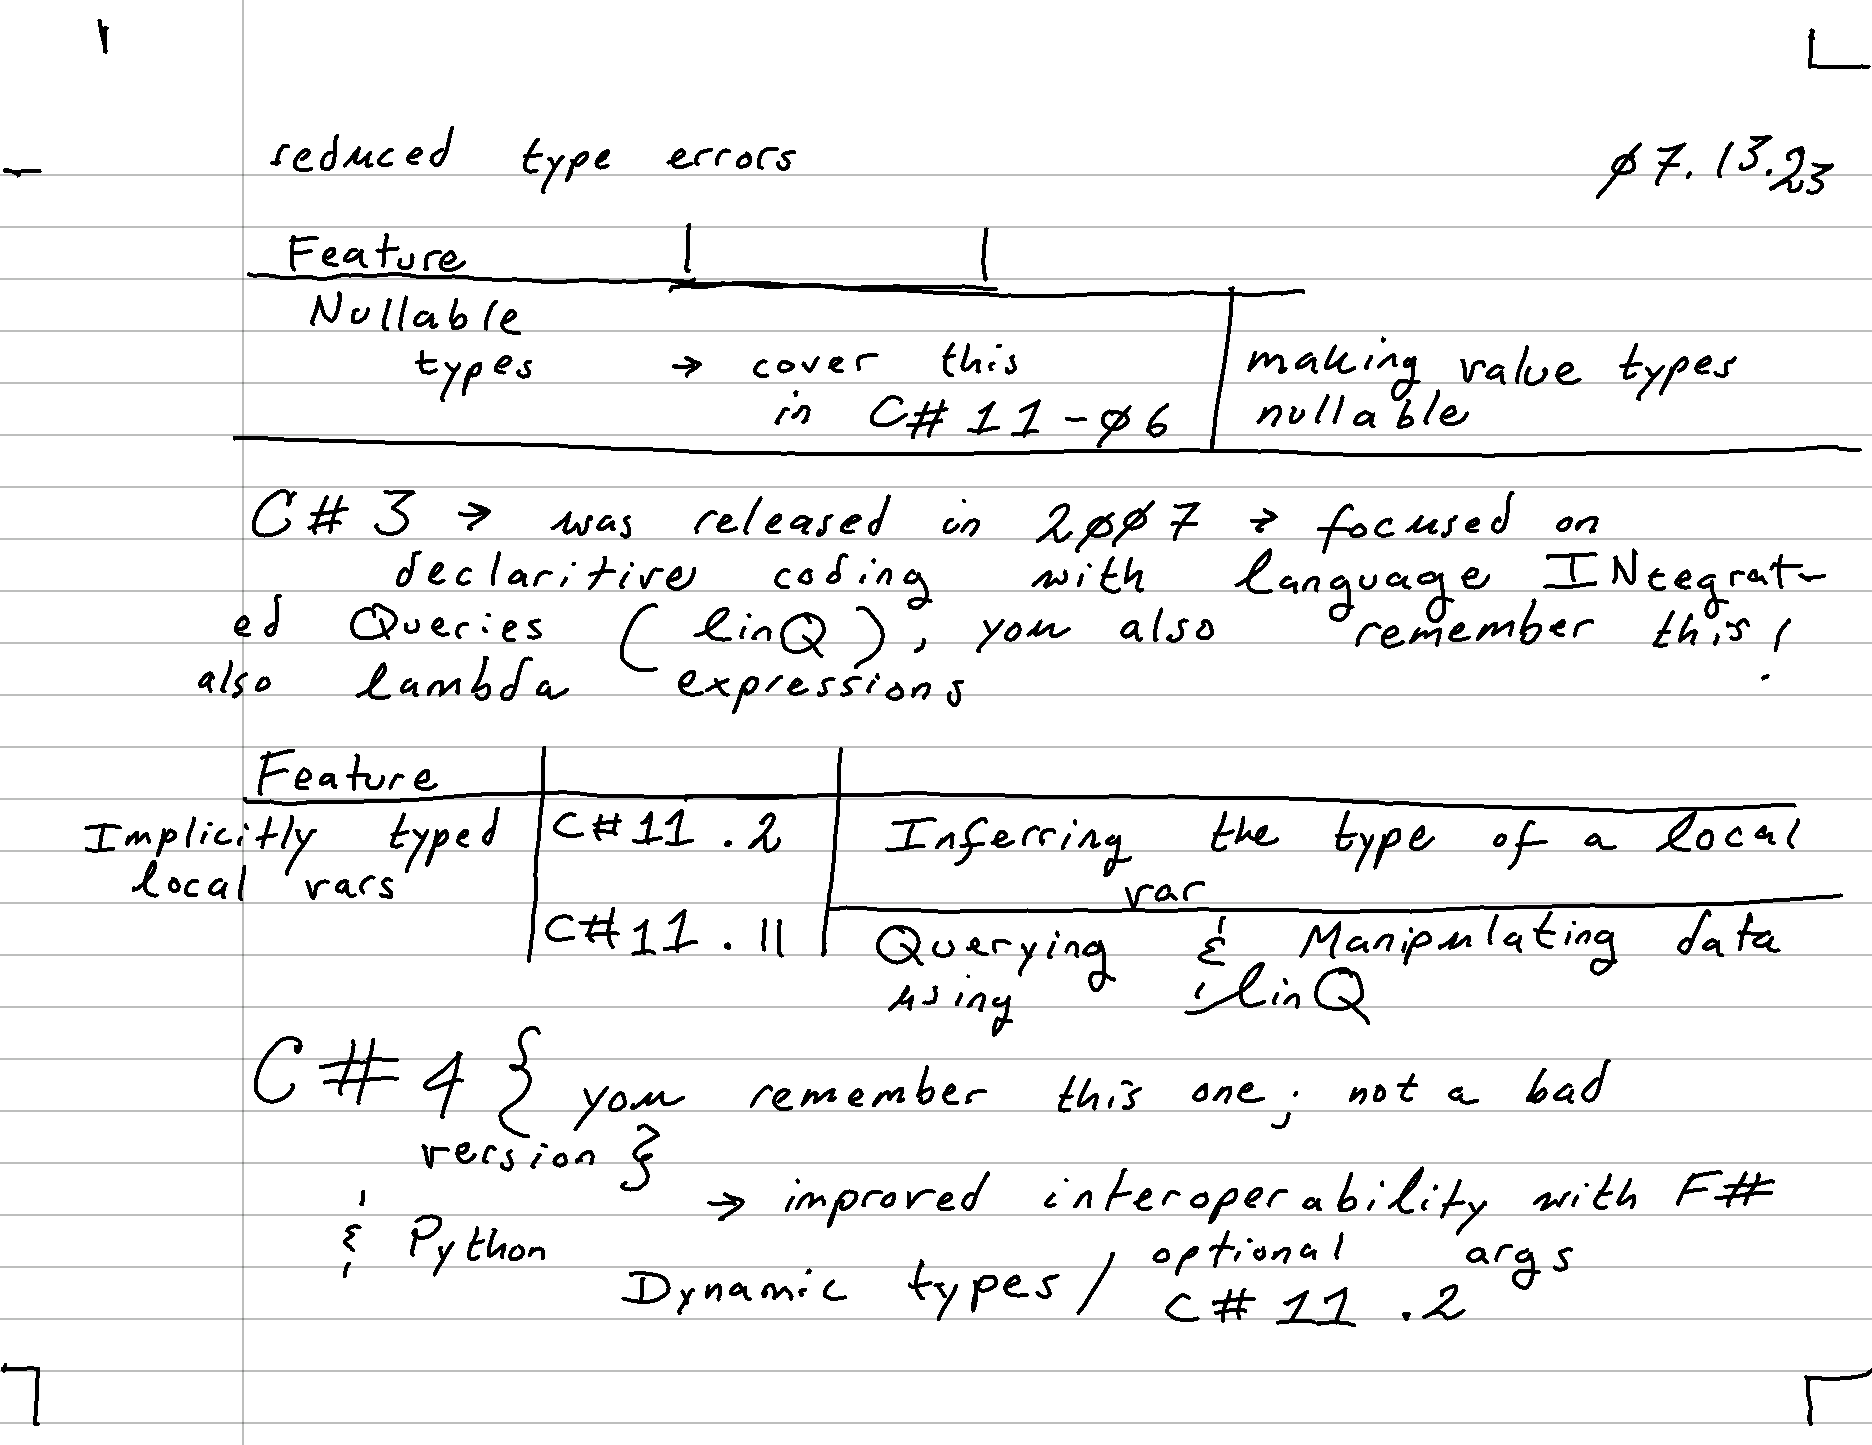 reduced type errors 07.13.23
Feature
Nullable
types → cover this making value types
in C# 11-06 nullable
C# 3 → was released in 2007 → focused on
declaritive coding with language INtegrat-
ed Queries (linQ), you also remember this!
also lambda expressions
Feature
Implicitly typed C# 11.2 Inferring the type of a local
local vars var
C# 11.11 Querying & Manipulating data
using linQ
C# 4 { you remember this one; not a bad
version }
→ improved interoperability with F#
& Python optional args
Dynamic types / C# 11.2